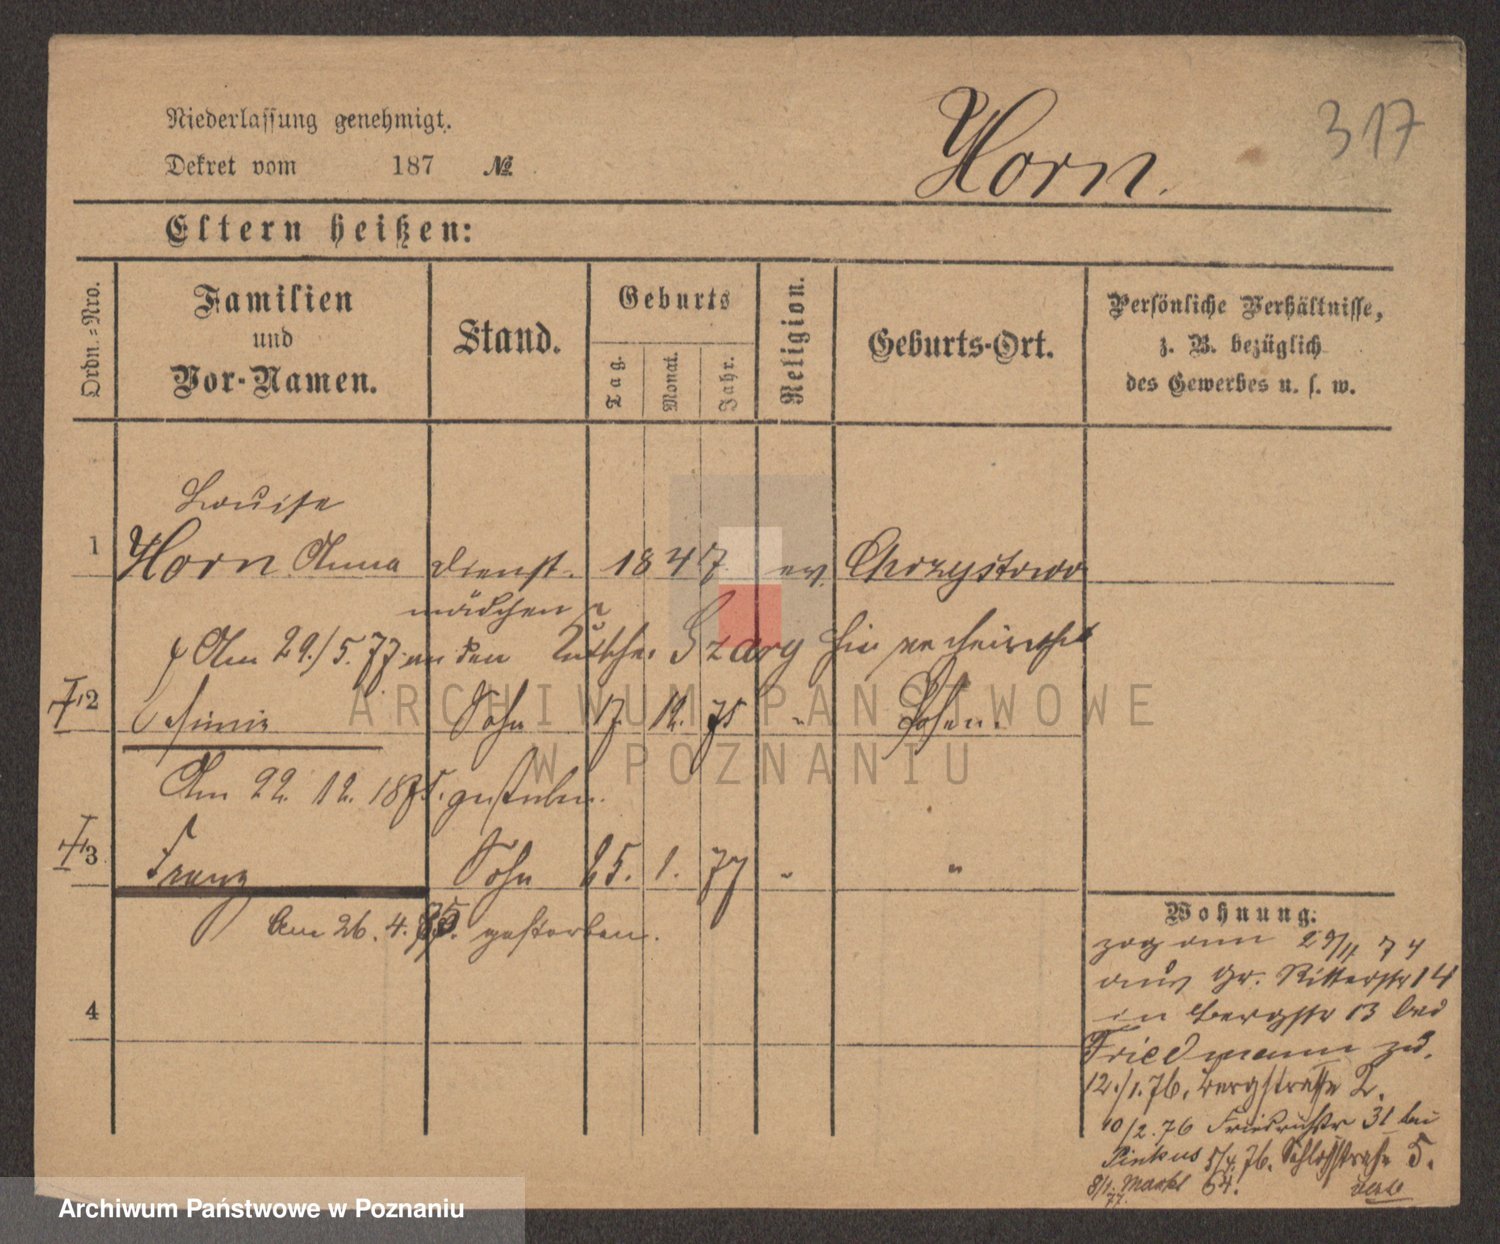 Niederlassung genehmigt.
Dekret vom 187 №
Horn.
317
Eltern heißen:
Ordn.-Nro.
Familien
und
Vor-Namen.
Stand.
Geburts
Tag.
Monat.
Jahr.
Religion.
Geburts-Ort.
Persönliche Verhältnisse,
z. B. bezüglich
des Gewerbes u. s. w.
Louise
1 Horn Anna Dienst- 1847 ev. Chrzystowo
mädchen
Am 29./5.77. an den Szary hier verheirathet
2 Casimir Sohn 17. 12. 75 " Posen.
Am 22. 12. 1875. gestorben.
3 Franz Sohn 25. 1. 77 " "
Am 26. 4. gestorben.
4
Wohnung.
zog am 29/11 74
aus Gr. Ritterstr 14
in Bergstr 13 bei
Friedmann zu.
12./1.76. Bergstraße 2.
10/2.76 Friedrichstr 31 bei
Pinkus 5/4.76. Schloßstraße 5.
8/1.77. Markt 64.
ARCHIWUM PAŃSTWOWE
W POZNANIU
Archiwum Państwowe w Poznaniu